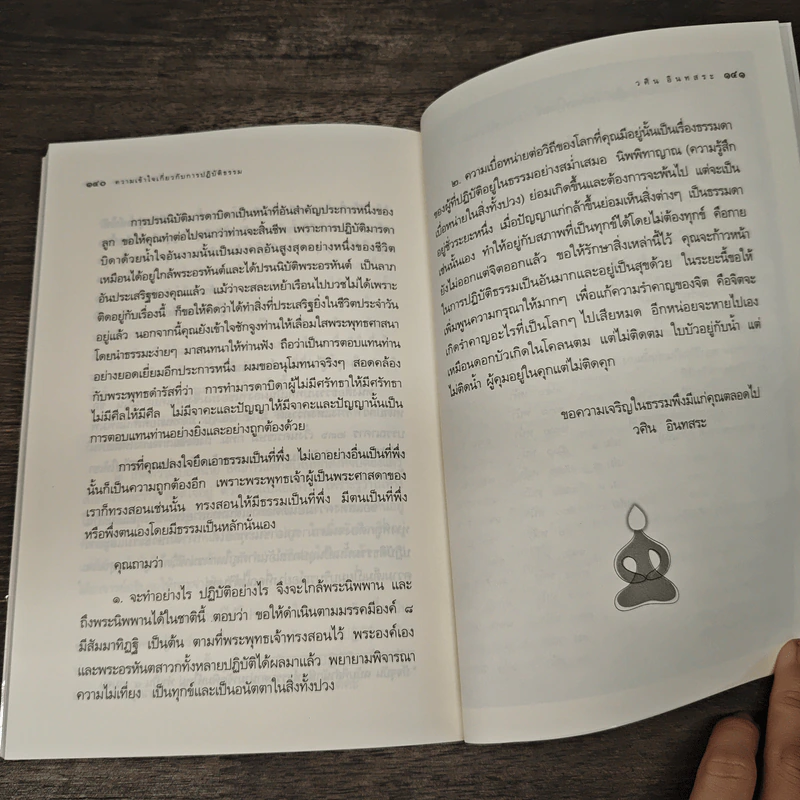 ๑๔๐ ความเข้าใจเกี่ยวกับการปฏิบัติธรรม
การปรนนิบัติมารดาบิดาเป็นหน้าที่อันสำคัญประการหนึ่งของ
ลูก ขอให้คุณทำต่อไปจนกว่าท่านจะสิ้นชีพ เพราะการปฏิบัติมารดา
บิดาด้วยน้ำใจอันงามนั้นเป็นมงคลอันสูงสุดอย่างหนึ่งของชีวิต
เหมือนได้อยู่ใกล้พระอรหันต์และได้ปรนนิบัติพระอรหันต์ เป็นลาภ
อันประเสริฐของคุณแล้ว แม้ว่าจะสละเหย้าเรือนไปบวชไม่ได้เพราะ
ติดอยู่กับเรื่องนี้ ก็ขอให้คิดว่าได้ทำสิ่งที่ประเสริฐยิ่งในชีวิตประจำวัน
อยู่แล้ว นอกจากนี้คุณยังเข้าใจชักจูงท่านให้เลื่อมใสพระพุทธศาสนา
โดยนำธรรมะง่ายๆ มาสนทนาให้ท่านฟัง ถือว่าเป็นการตอบแทนท่าน
อย่างยอดเยี่ยมอีกประการหนึ่ง ผมขออนุโมทนาจริงๆ สอดคล้อง
กับพระพุทธดำรัสที่ว่า การทำมารดาบิดาผู้ไม่มีศรัทธาให้มีศรัทธา
ไม่มีศีลให้มีศีล ไม่มีจาคะและปัญญาให้มีจาคะและปัญญานั้นเป็น
การตอบแทนท่านอย่างยิ่งและอย่างถูกต้องด้วย
การที่คุณปลงใจยึดเอาธรรมเป็นที่พึ่ง ไม่เอาอย่างอื่นเป็นที่พึ่ง
นั้นก็เป็นความถูกต้องอีก เพราะพระพุทธเจ้าผู้เป็นพระศาสดาของ
เราก็ทรงสอนเช่นนั้น ทรงสอนให้มีธรรมเป็นที่พึ่ง มีตนเป็นที่พึ่ง
หรือพึ่งตนเองโดยมีธรรมเป็นหลักนั่นเอง
คุณถามว่า
๑. จะทำอย่างไร ปฏิบัติอย่างไร จึงจะใกล้พระนิพพาน และ
ถึงพระนิพพานได้ในชาตินี้ ตอบว่า ขอให้ดำเนินตามมรรคมีองค์ ๘
มีสัมมาทิฏฐิ เป็นต้น ตามที่พระพุทธเจ้าทรงสอนไว้ พระองค์เอง
และพระอรหันตสาวกทั้งหลายปฏิบัติได้ผลมาแล้ว พยายามพิจารณา
ความไม่เที่ยง เป็นทุกข์และเป็นอนัตตาในสิ่งทั้งปวง
วศิน อินทสระ ๑๔๑
๒. ความเบื่อหน่ายต่อวิถีของโลกที่คุณมีอยู่นั้นเป็นเรื่องธรรมดา
ของผู้ที่ปฏิบัติอยู่ในธรรมอย่างสม่ำเสมอ นิพพิทาญาณ (ความรู้สึก
เบื่อหน่ายในสิ่งทั้งปวง) ย่อมเกิดขึ้นและต้องการจะพ้นไป แต่จะเป็น
อยู่ชั่วระยะหนึ่ง เมื่อปัญญาแก่กล้าขึ้นย่อมเห็นสิ่งต่างๆ เป็นธรรมดา
เช่นนั้นเอง ทำให้อยู่กับสภาพที่เป็นทุกข์ได้โดยไม่ต้องทุกข์ คือกาย
ยังไม่ออกแต่จิตออกแล้ว ขอให้รักษาสิ่งเหล่านี้ไว้ คุณจะก้าวหน้า
ในการปฏิบัติธรรมเป็นอันมากและอยู่เป็นสุขด้วย ในระยะนี้ขอให้
เพิ่มพูนความกรุณาให้มากๆ เพื่อแก้ความรำคาญของจิต คือจิตจะ
เกิดรำคาญอะไรที่เป็นโลกๆ ไปเสียหมด อีกหน่อยจะหายไปเอง
เหมือนดอกบัวเกิดในโคลนตม แต่ไม่ติดตม ใบบัวอยู่กับน้ำ แต่
ไม่ติดน้ำ ผู้คุมอยู่ในคุกแต่ไม่ติดคุก
ขอความเจริญในธรรมพึงมีแก่คุณตลอดไป
วศิน อินทสระ